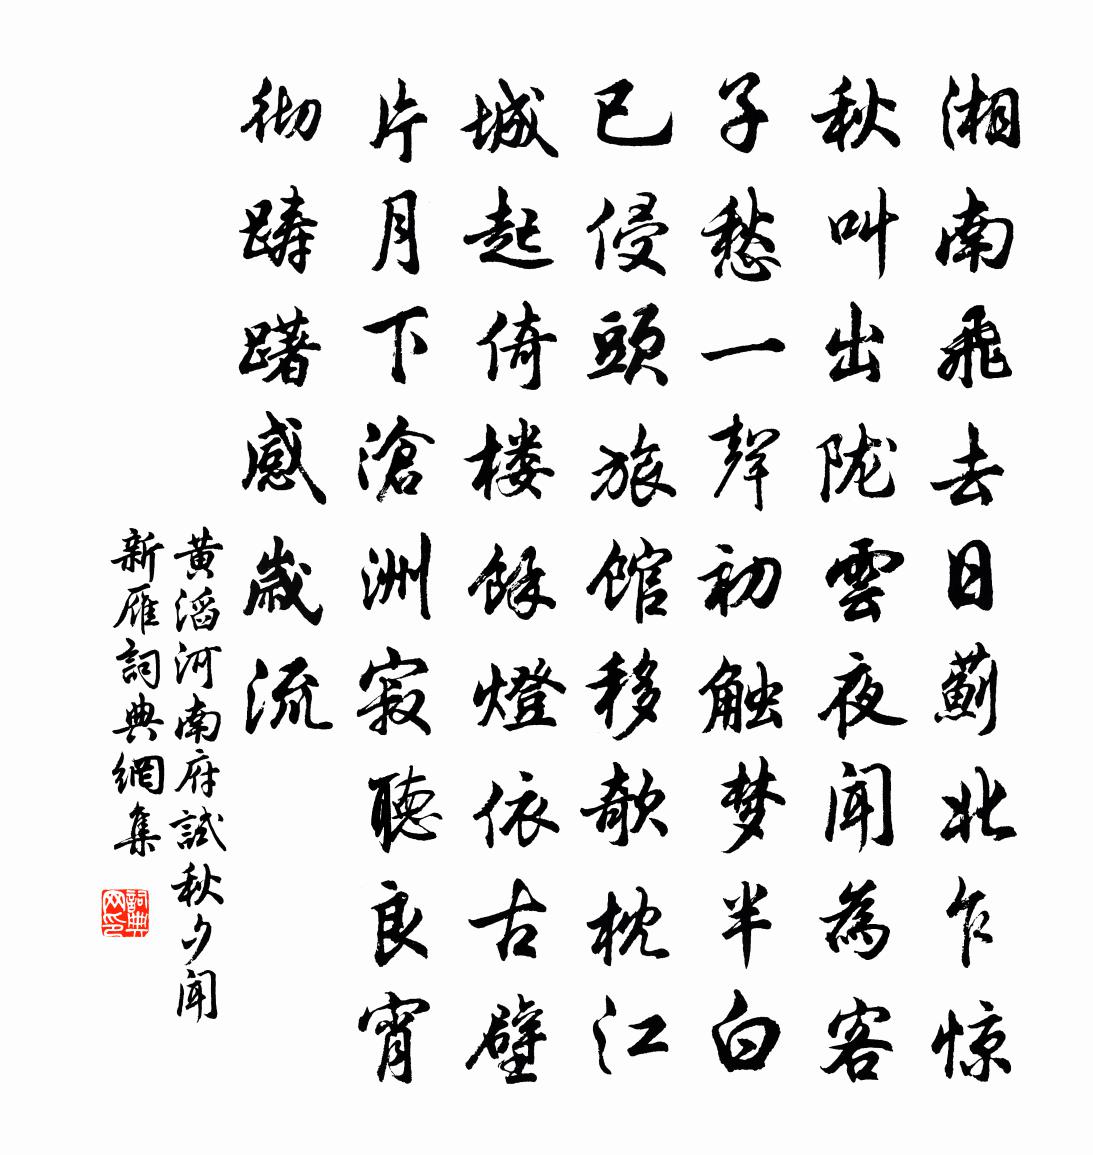 湘南飛去日薊北乍惊
秋叫出陇雲夜闻為客
子愁一聲初触梦半白
已侵頭旅馆移欹枕江
城起倚楼餘燈依古壁
片月下滄洲寂聽良宵
彻踌躇感歲流
黄滔河南府試秋夕闻
新雁詞典網集
詞典网印